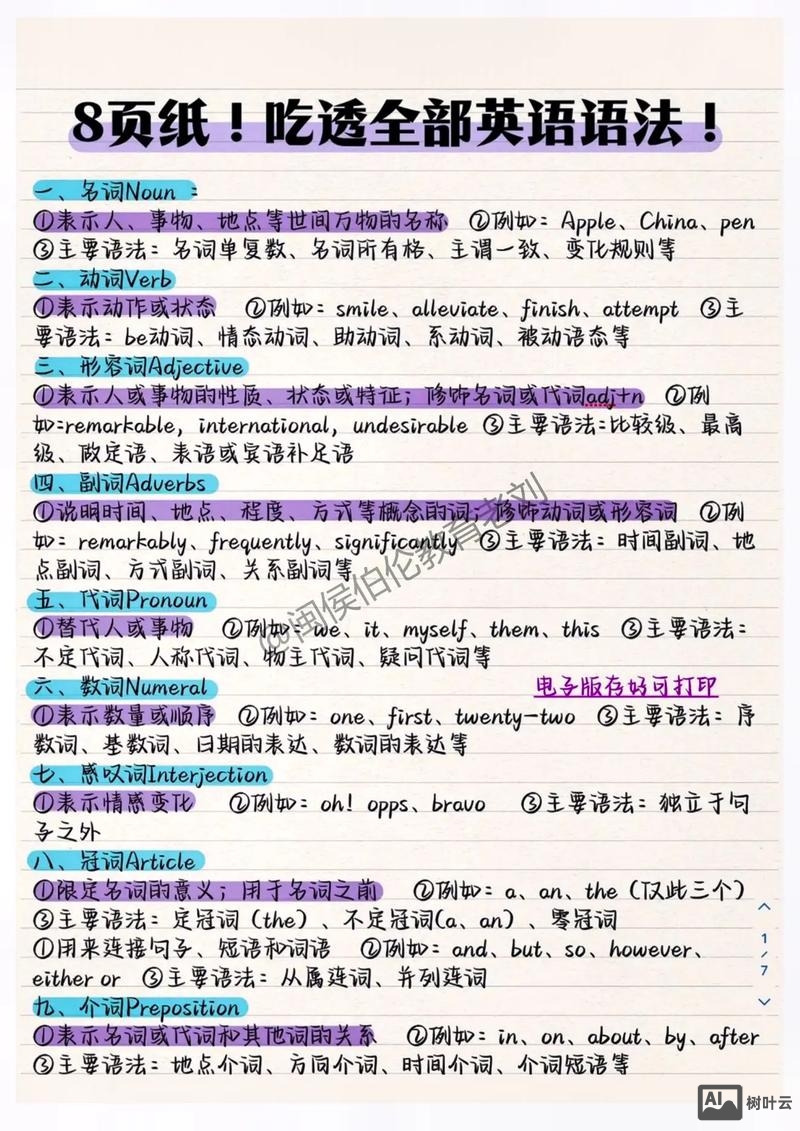 8页纸！吃透全部英语语法！
一、名词Noun：
①表示人、事物、地点等世间万物的名称 ②例如：Apple、China、pen
③主要语法：名词单复数、名词所有格、主谓一致、变化规则等
二、动词Verb
①表示动作或状态 ②例如：smile、alleviate、finish、attempt ③主
要语法：be动词、情态动词、助动词、系动词、被动语态等
三、形容词Adjective
①表示人或事物的性质、状态或特征；修饰名词或代词adj+n ②例
如:remarkable, international, undesirable ③主要语法:比较级、最高
级、做定语、表语或宾语补足语
四、副词Adverbs
①说明时间、地点、程度、方式等概念的词；修饰动词或形容词 ②例
如：remarkably、frequently、significantly ③主要语法：时间副词、地
点副词、方式副词、关系副词等
五、代词Pronoun
①替代人或事物 ②例如：we、it、myself、them、this ③主要语法：
不定代词、人称代词、物主代词、疑问代词等
@闽侯伯伦教育老刘
六、数词Numeral
电子版存好可打印
①表示数量或顺序 ②例如：one、first、twenty-two ③主要语法：序
数词、基数词、日期的表达、数词的表达等
七、感叹词Interjection
①表示情感变化 ②例如：oh! opps、bravo ③主要语法：独立于句
子之外
八、冠词Article
①限定名词的意义；用于名词之前 ②例如：a、an、the（仅此三个）
③主要语法：定冠词（the）、不定冠词(a、an）、零冠词
①用来连接句子、短语和词语 ②例如：and、but、so、however、
either or ③主要语法：从属连词、并列连词
九、介词Preposition
①表示名词或代词和其他词的关系 ②例如：in、on、about、by、after
③主要语法：地点介词、方向介词、时间介词、介词短语等
1
/
7
AI 树叶云